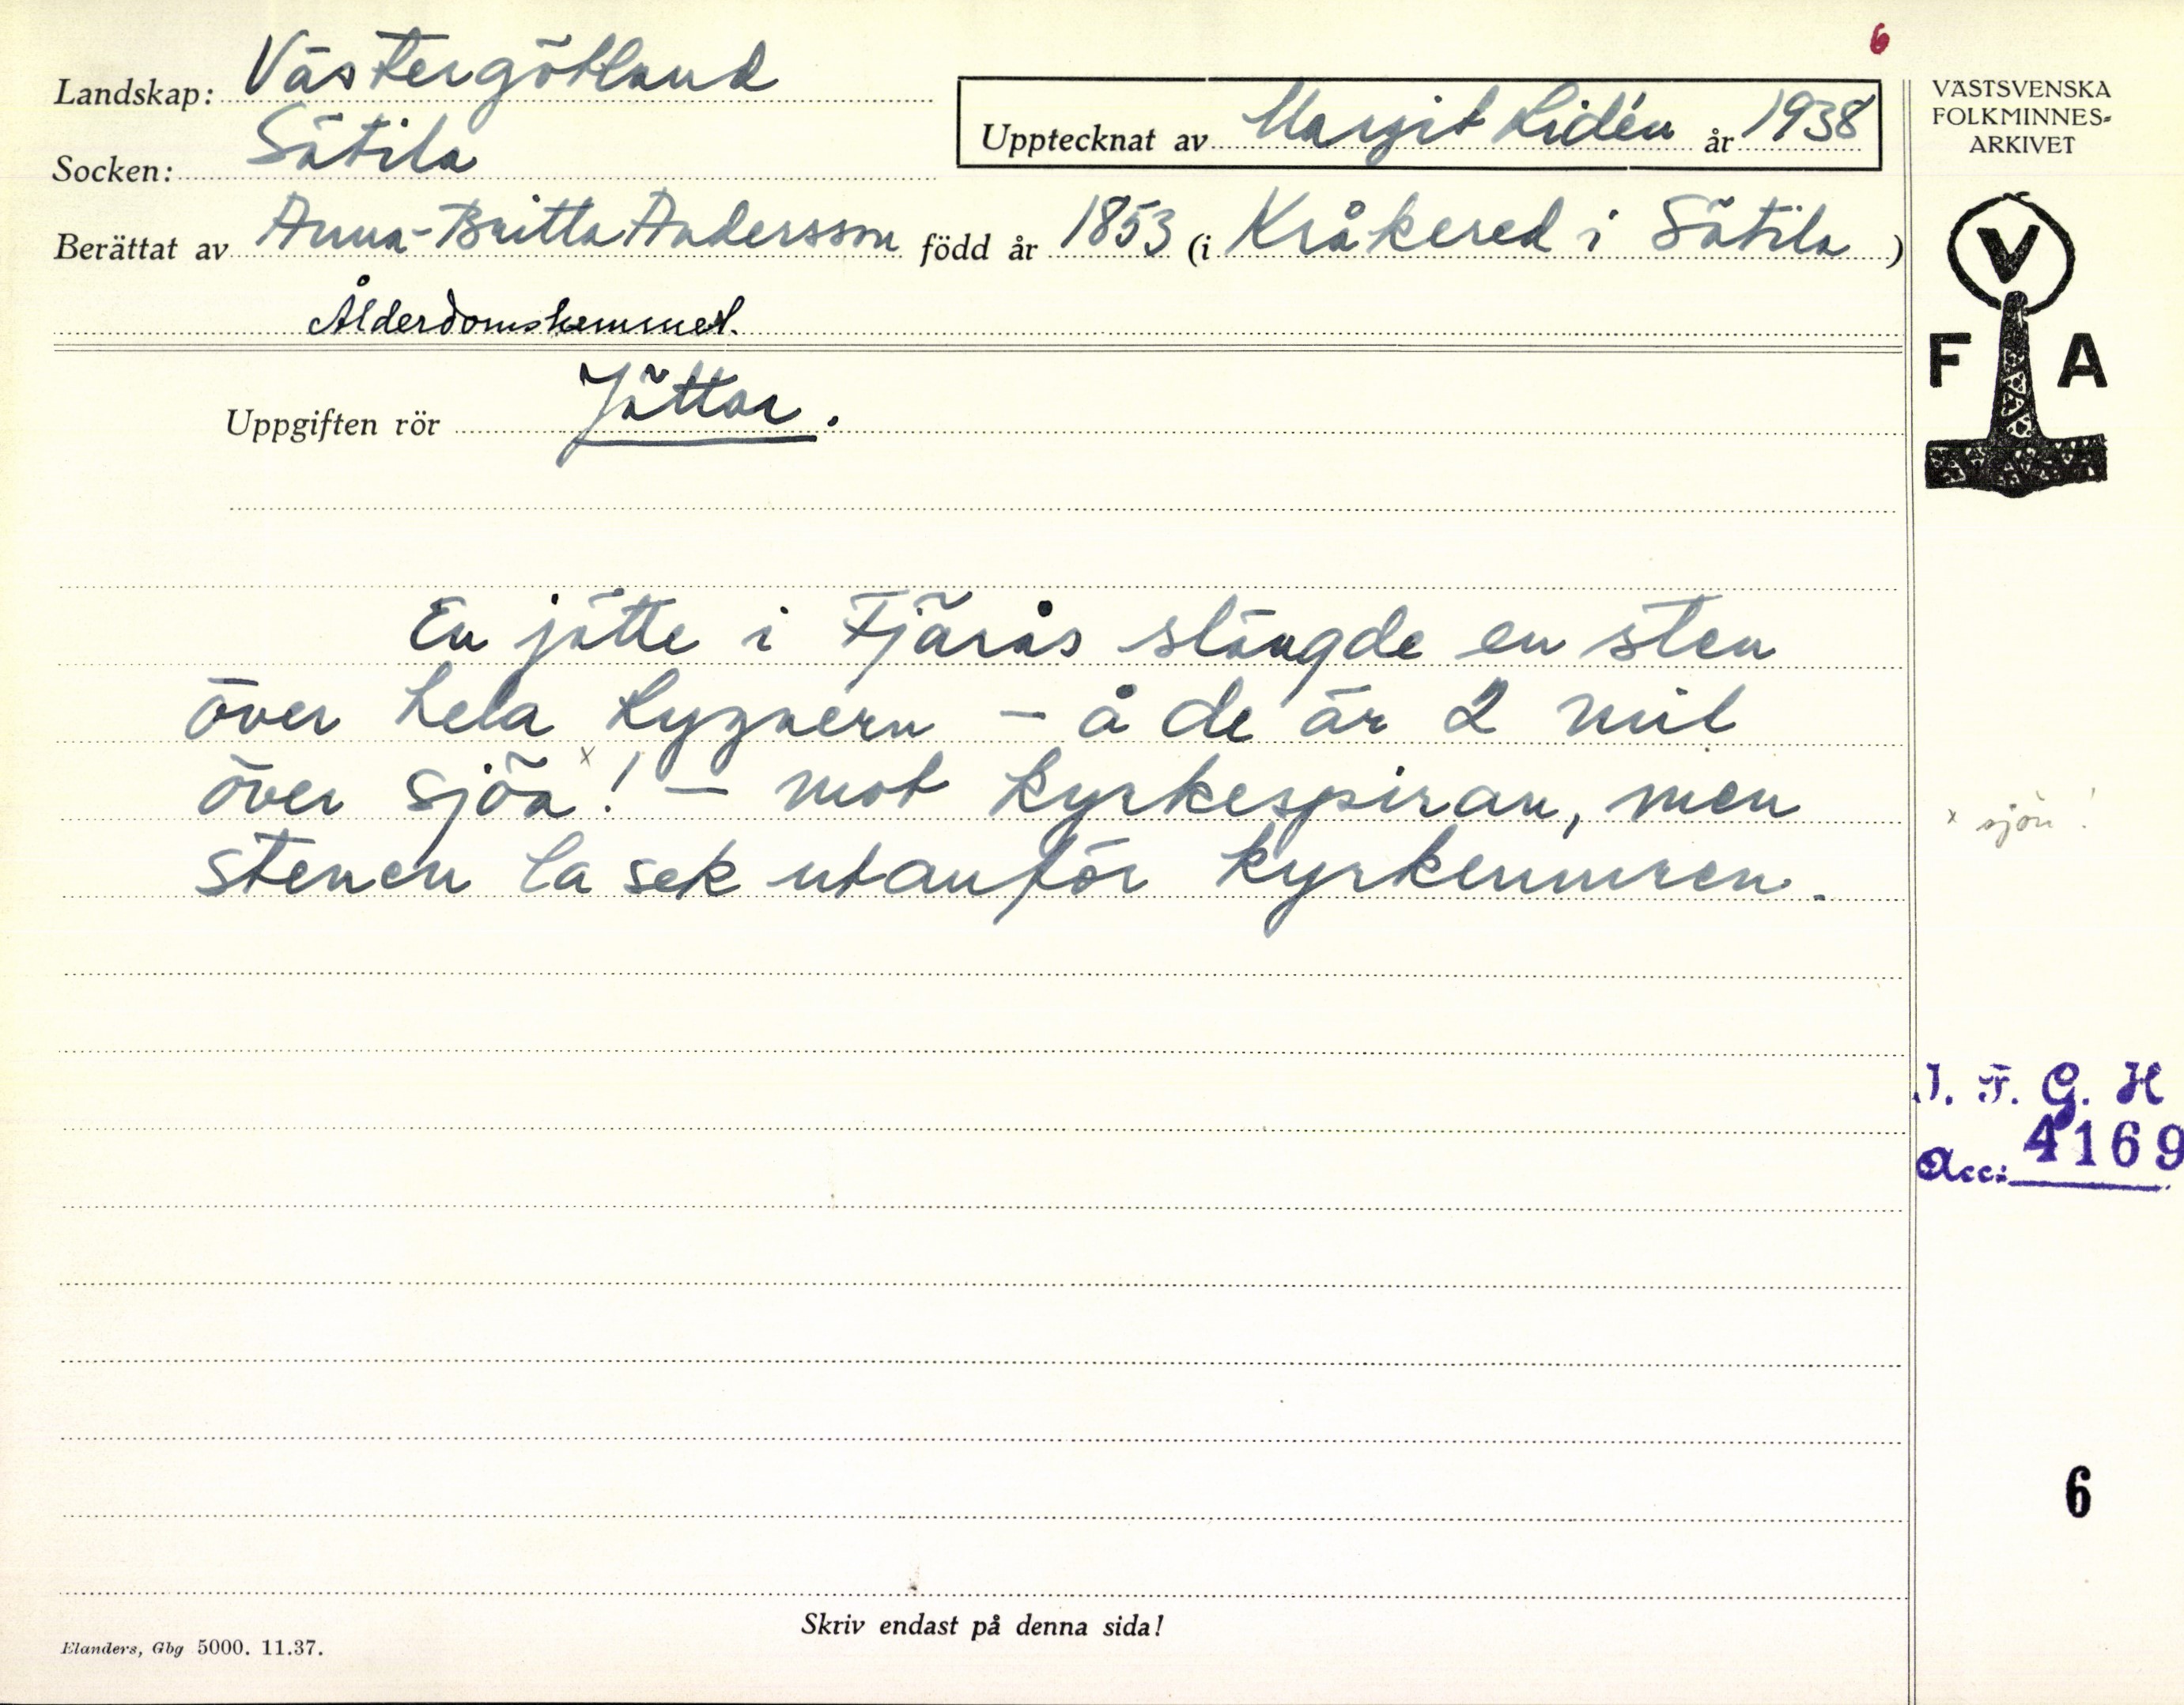 6
Landskap: Västergötland
Socken: Sätila
Upptecknat av Margit Lidén år 1938
Berättat av Anna-Britta Andersson född år 1853 (i Kråkered i Sätila )
Ålderdomshemmet.
Uppgiften rör Jättar.
En jätte i Fjärås slängde en sten
över hela Lygnern – å de är 2 mil
över sjöa x! – mot kyrkespiran, men
stenen la sek utanför kyrkemuren.
VÄSTSVENSKA
FOLKMINNES-
ARKIVET
V
F A
x sjön!
I. F. G. H
Acc: 4169
6
Skriv endast på denna sida!
Elanders, Gbg 5000. 11.37.